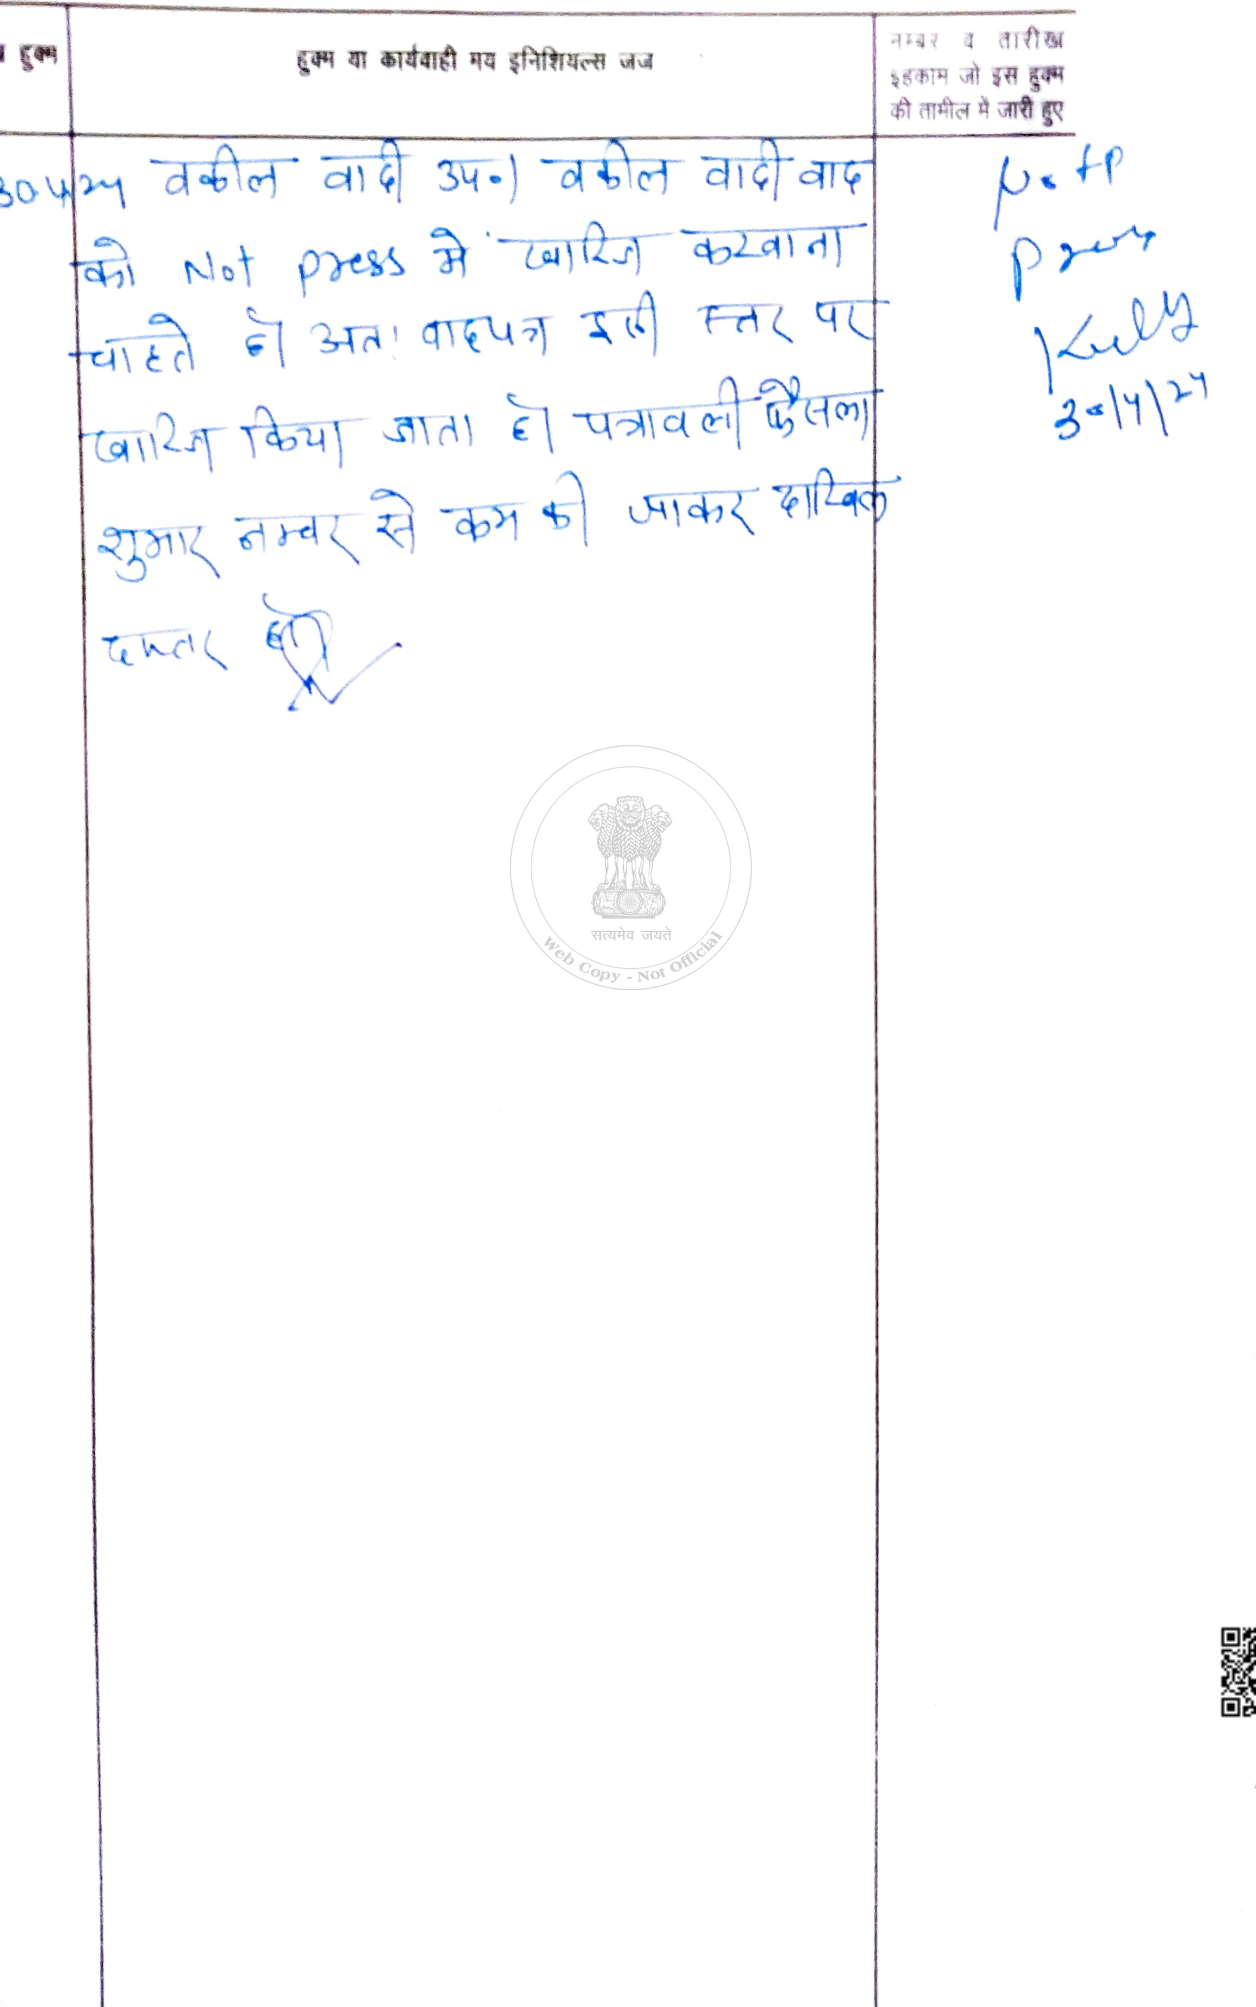 हुक्म
हुक्म या कार्यवाही मय इनिशियल्स जज
नम्बर व तारीख
इहकाम जो इस हुक्म
की तामील में जारी हुए
30.4/24 वकील वादी उप०। वकील वादी वाद
को Not press मे खारिज करवाना
चाहते है। अतः वादपत्र इसी स्तर पर
खारिज किया जाता है। पत्रावली फैसला
शुमार नम्बर से कम की जाकर दाखिल
दफ्तर हो।
Not
press
30/4/24
सत्यमेव जयते
Web Copy - Not Official